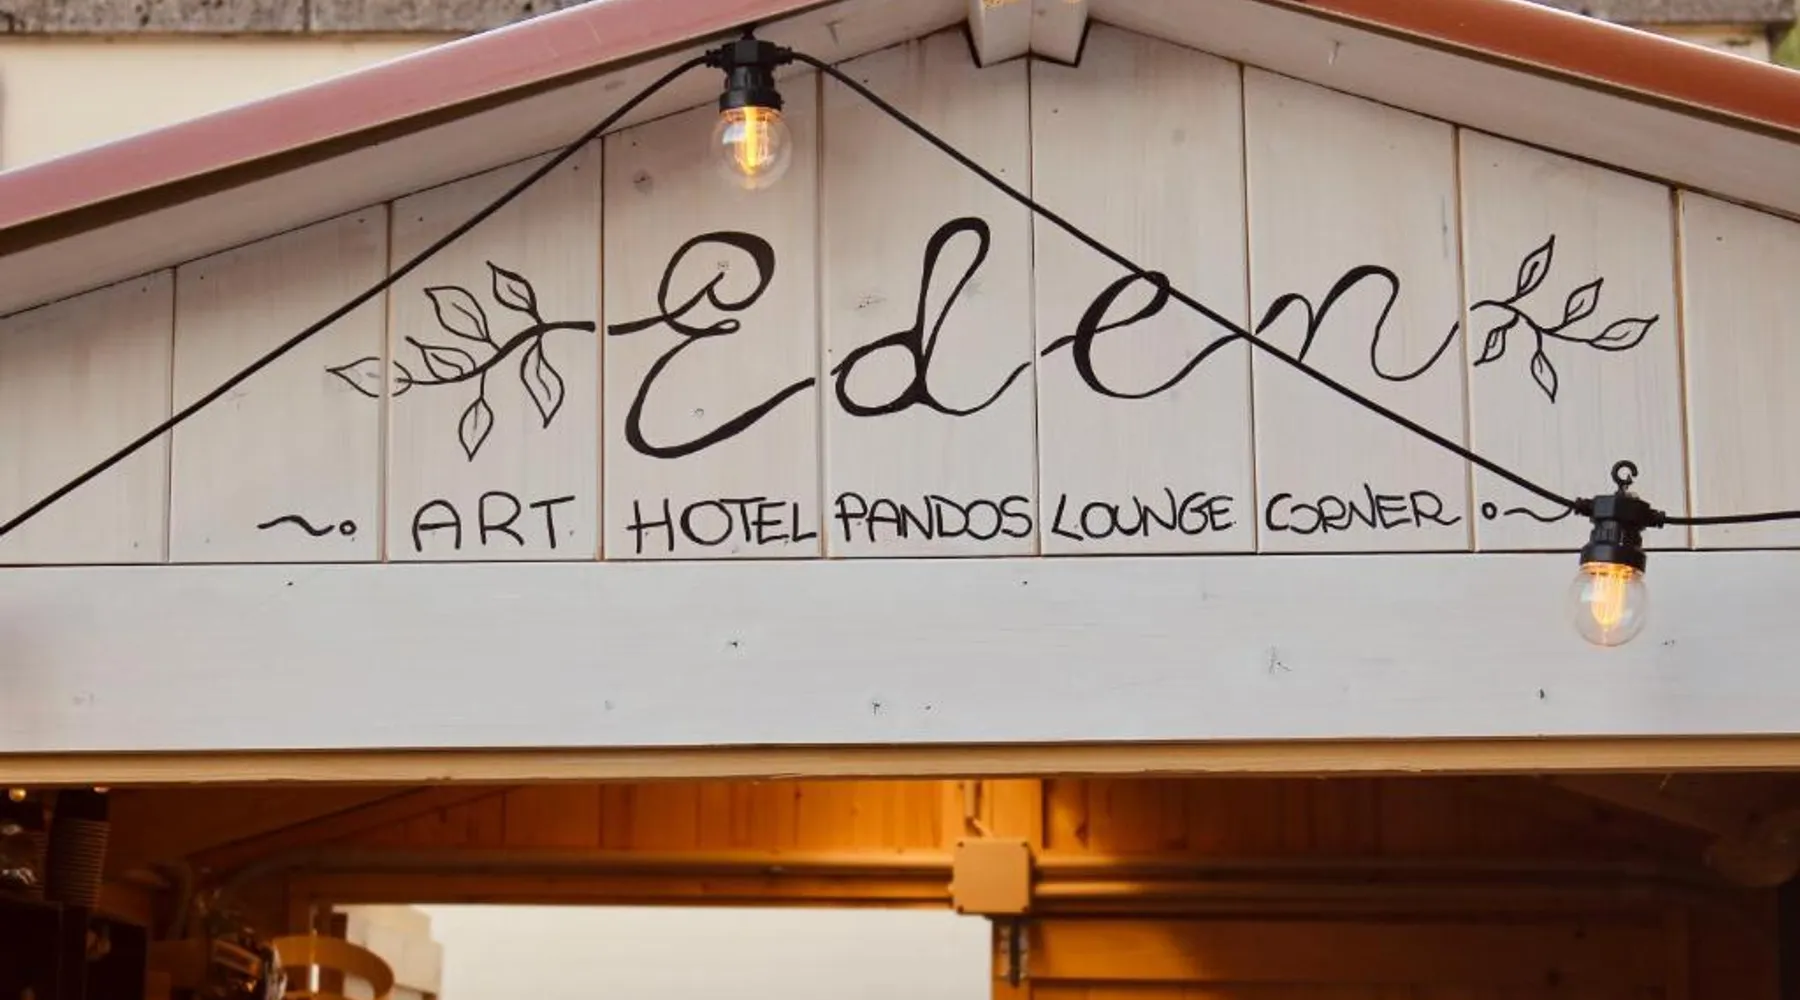 Eden
ART HOTEL PANDOS LOUNGE CORNER